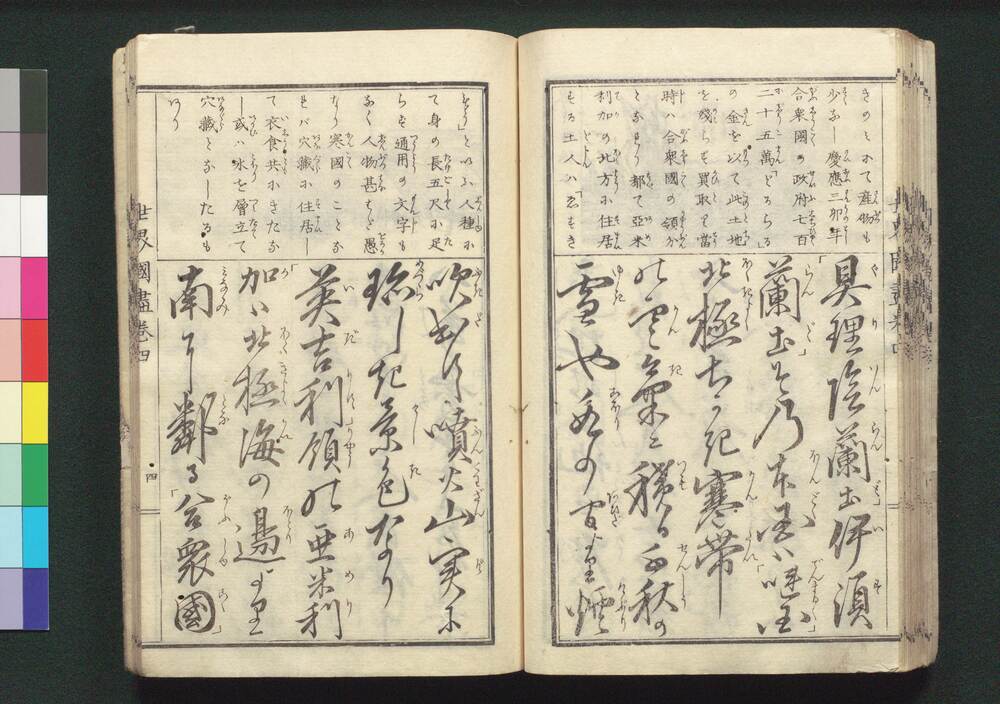 きのミにて産物も
少なし慶應三卯年
合衆國の政府七百
二十五萬「どるらる」
の金を以て此土地
を殘らず買取り當
時ハ合衆國の領分
となせり都て亞米
利加の北方に住居
する土人ハ「ゑすき
「具理陰蘭土」「伊須
蘭土」その本國ハ「嗹國」
北極ちかき寒帯
の雲氣に積る千秋の
雪や氷の間より煙
もう」といふ人種に
て身の長五尺に足
らず通用の文字も
なく人物甚だ愚
なり寒國のことな
れバ穴藏に住居し
て衣食共にきたな
し或ハ氷を層立て
穴藏となしたるも
あり
吹出す噴火山実に
珍しき景色なり
英吉利領の亜米利
加ハ北極海の邊より
南に鄰る「合衆國」
世界國盡卷四
四